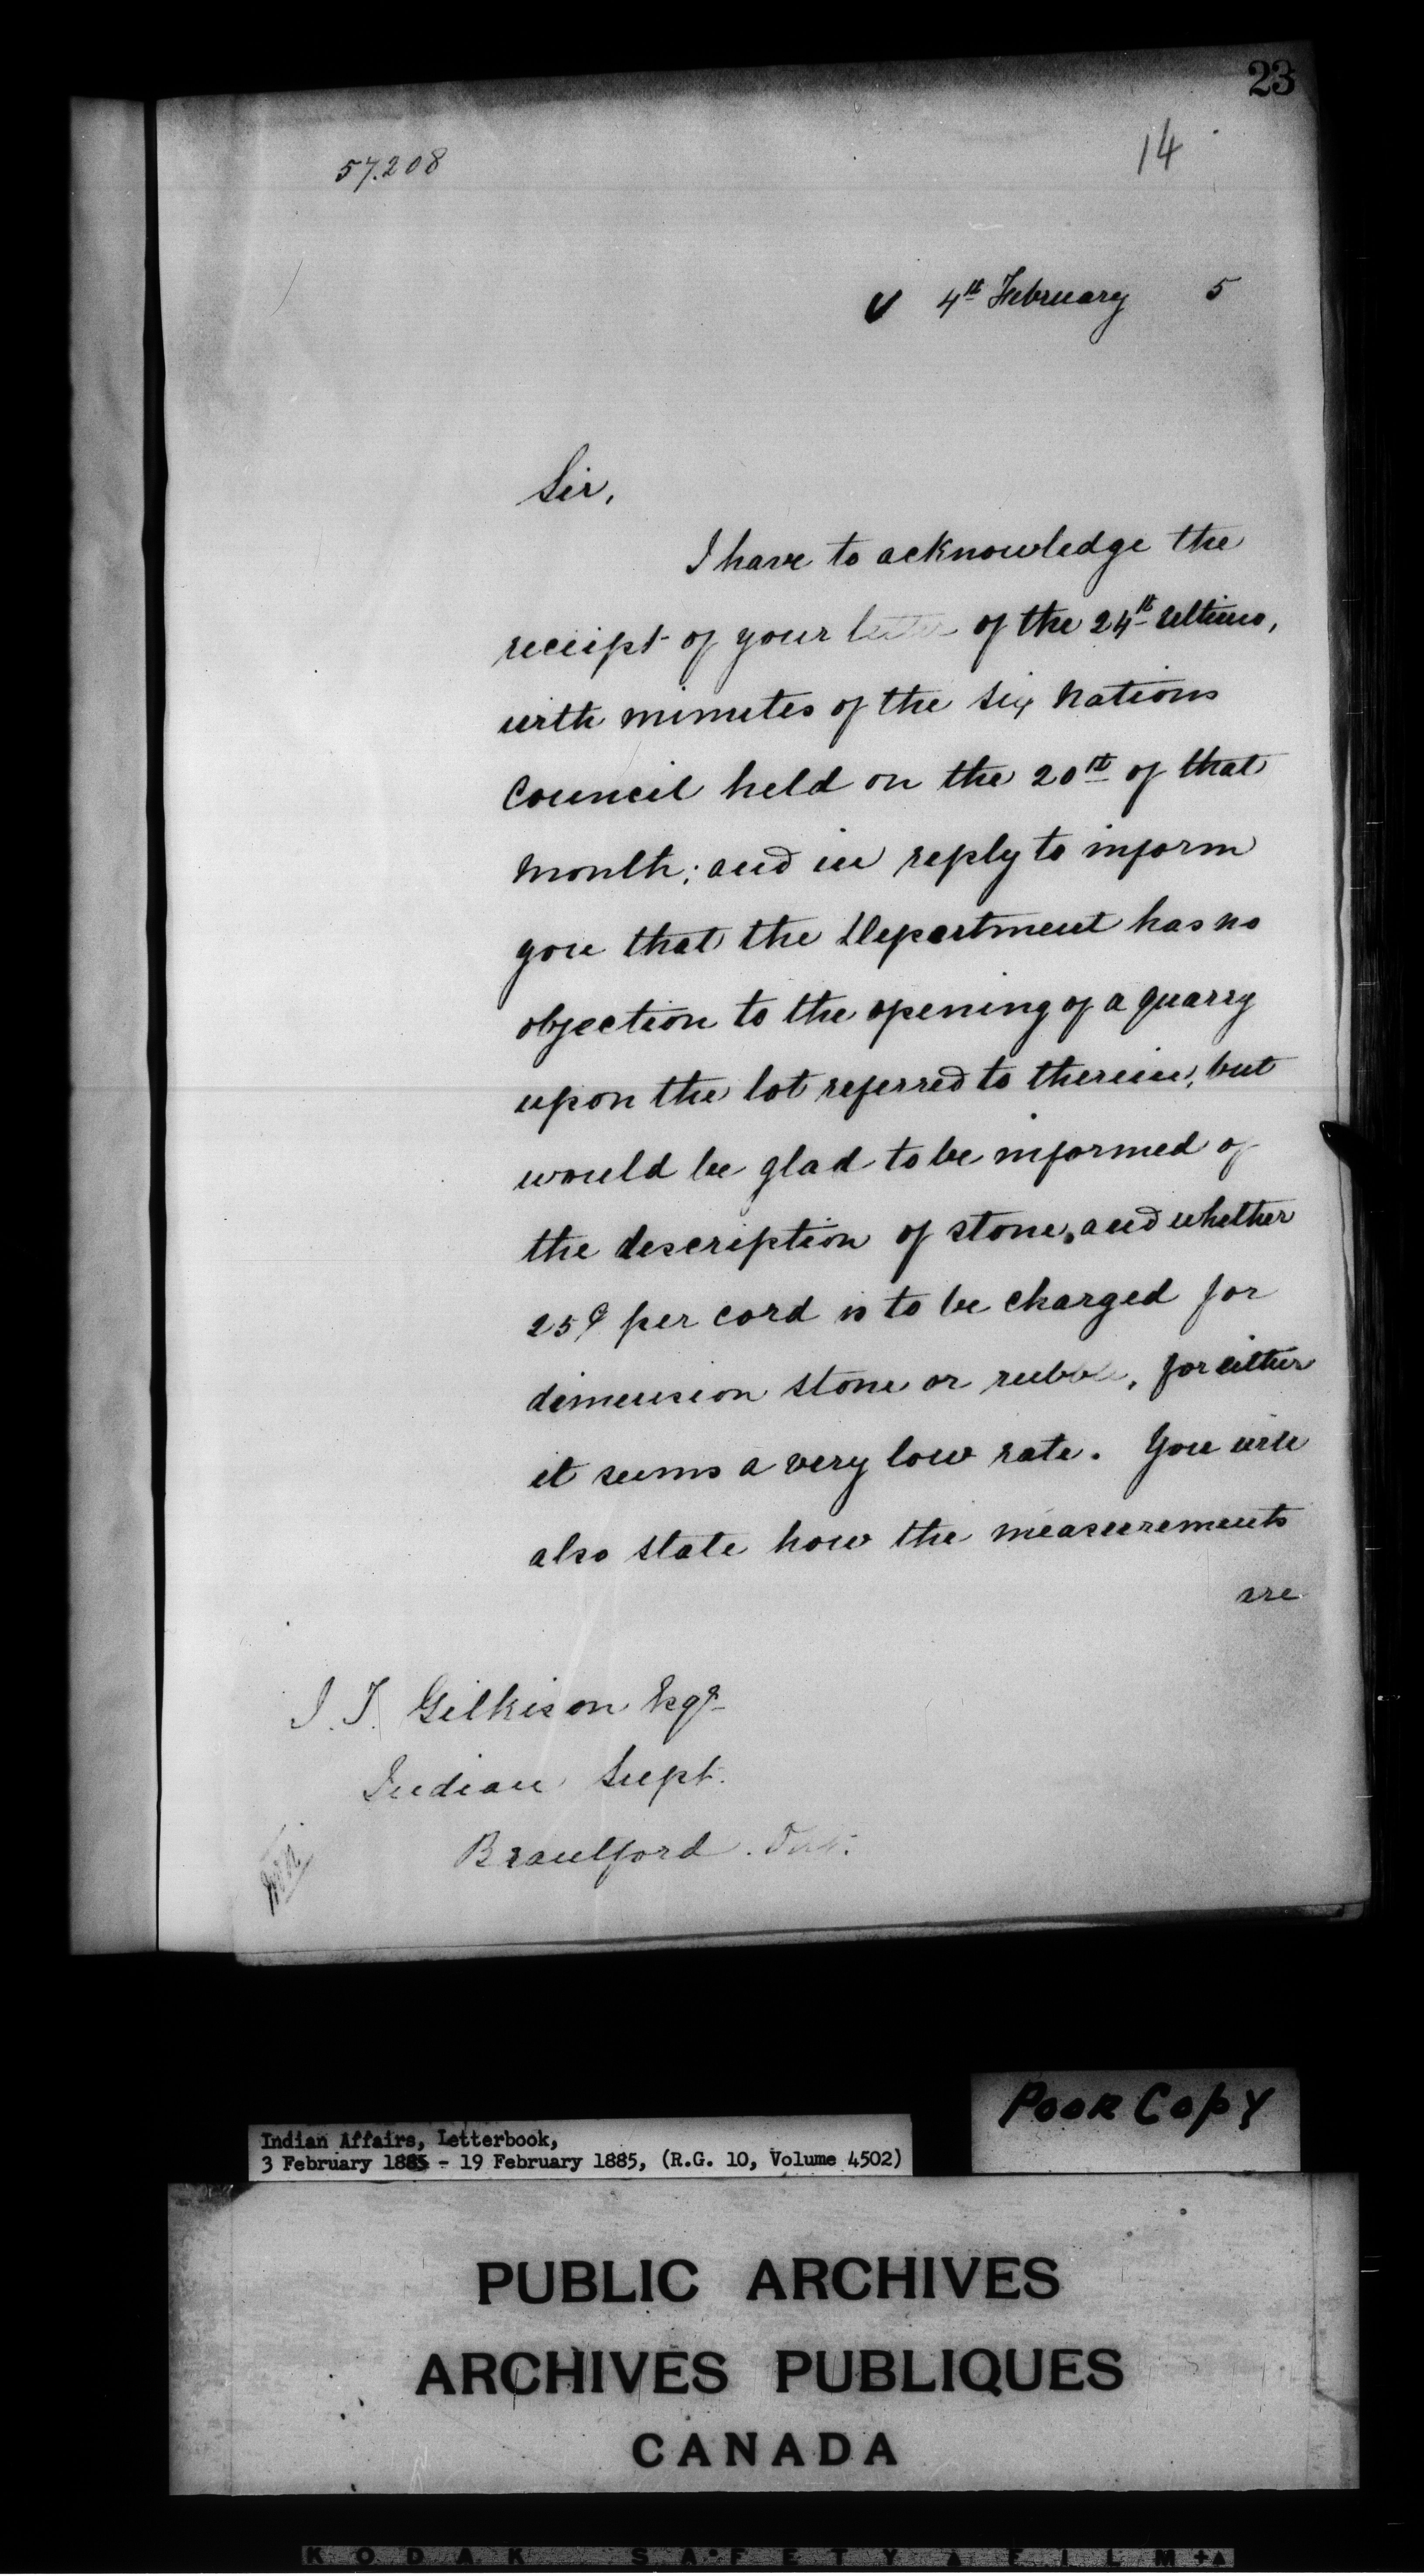 23
14
57.208
4th February 5
Sir,
I have to acknowledge the
receipt of your letter of the 24th ultimo,
with minutes of the Six Nations
Council held on the 20th of that
month; and in reply to inform
you that the Department has no
objection to the opening of a quarry
upon the lot referred to therein, but
would be glad to be informed of
the description of stone, and whether
25¢ per cord is to be charged for
dimension stone or rubble, for either
it seems a very low rate. You will
also state how the measurements
are
J. T. Gilkison Esqr
Indian Supt.
Brantford. Ont.
Poor Copy
Indian Affairs, Letterbook,
3 February 1885 - 19 February 1885, (R.G. 10, Volume 4502)
PUBLIC ARCHIVES
ARCHIVES PUBLIQUES
CANADA
KODAK SAFETY FILM